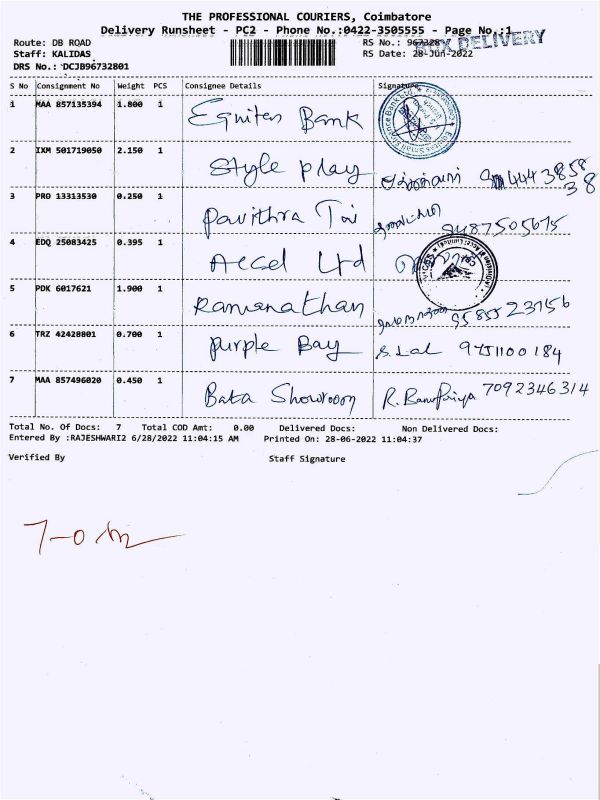 THE PROFESSIONAL COURIERS, Coimbatore
Delivery Runsheet - PC2 - Phone No.:0422-3505555 - Page No.:1
Route: DB ROAD
RS No.: 967328
DELIVERY
Staff: KALIDAS
RS Date: 28-Jun-2022
DRS No.: DCJB96732801
S No Consignment No Weight PCS Consignee Details Signature
1 MAA 857135394 1.800 1 Equitas Bank
2 IXM 501719050 2.150 1 Style play
3 PRO 13313530 0.250 1 Pavithra 9487505675
4 EDQ 25083425 0.395 1 Accel Ltd
5 PDK 6017621 1.900 1 Ramanathan
6 TRZ 42428801 0.700 1 Purple Bay S. Lal 9751100184
7 MAA 857496020 0.450 1 Bata Showroom R. Banupriya 7092346314
Total No. Of Docs: 7 Total COD Amt: 0.00 Delivered Docs: Non Delivered Docs:
Entered By :RAJESHWARI2 6/28/2022 11:04:15 AM Printed On: 28-06-2022 11:04:37
Verified By Staff Signature